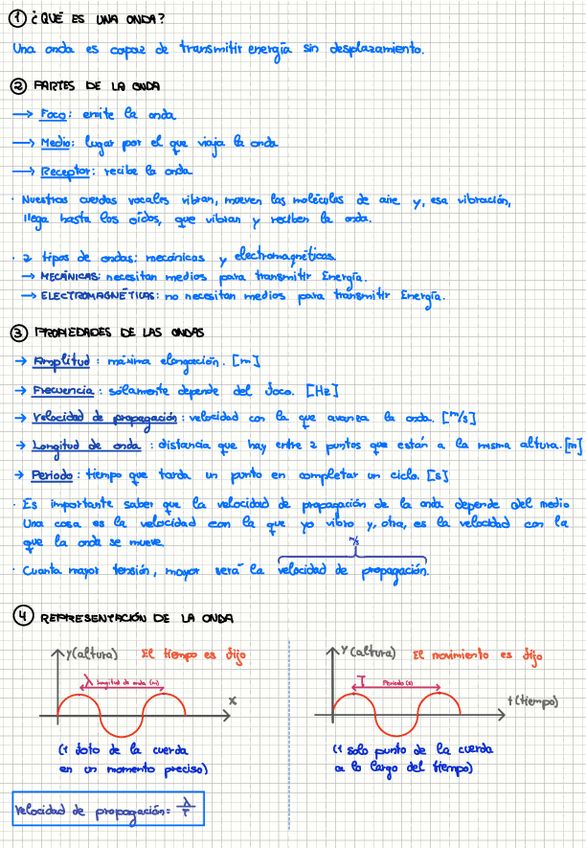 ① ¿QUÉ ES UNA ONDA?
Una onda es capaz de transmitir energía sin desplazamiento.
② PARTES DE LA ONDA
→ Foco: emite la onda
→ Medio: lugar por el que viaja la onda
→ Receptor: recibe la onda
· Nuestras cuerdas vocales vibran, mueven las moléculas de aire y, esa vibración,
llega hasta los oídos, que vibran y reciben la onda.
· 2 tipos de ondas: mecánicas y electromagnéticas.
→ MECÁNICAS: necesitan medios para transmitir Energía.
→ ELECTROMAGNÉTICAS: no necesitan medios para transmitir Energía.
③ PROPIEDADES DE LAS ONDAS
→ Amplitud: máxima elongación. [m]
→ Frecuencia: sólamente depende del foco. [Hz]
→ Velocidad de propagación: velocidad con la que avanza la onda. [m/s]
→ Longitud de onda: distancia que hay entre 2 puntos que están a la misma altura. [m]
→ Periodo: tiempo que tarda un punto en completar un ciclo. [s]
· Es importante saber que la velocidad de propagación de la onda depende del medio
Una cosa es la velocidad con la que yo vibro y, otra, es la velocidad con la
que la onda se mueve.
· Cuanta mayor tensión, mayor será la velocidad de propagación.
④ REPRESENTACIÓN DE LA ONDA
y (altura) El tiempo es fijo
λ longitud de onda (m)
x
(1 foto de la cuerda
en un momento preciso)
y (altura) El movimiento es fijo
T Periodo (s)
t (tiempo)
(1 solo punto de la cuerda
a lo largo del tiempo)
Velocidad de propagación = λ/T